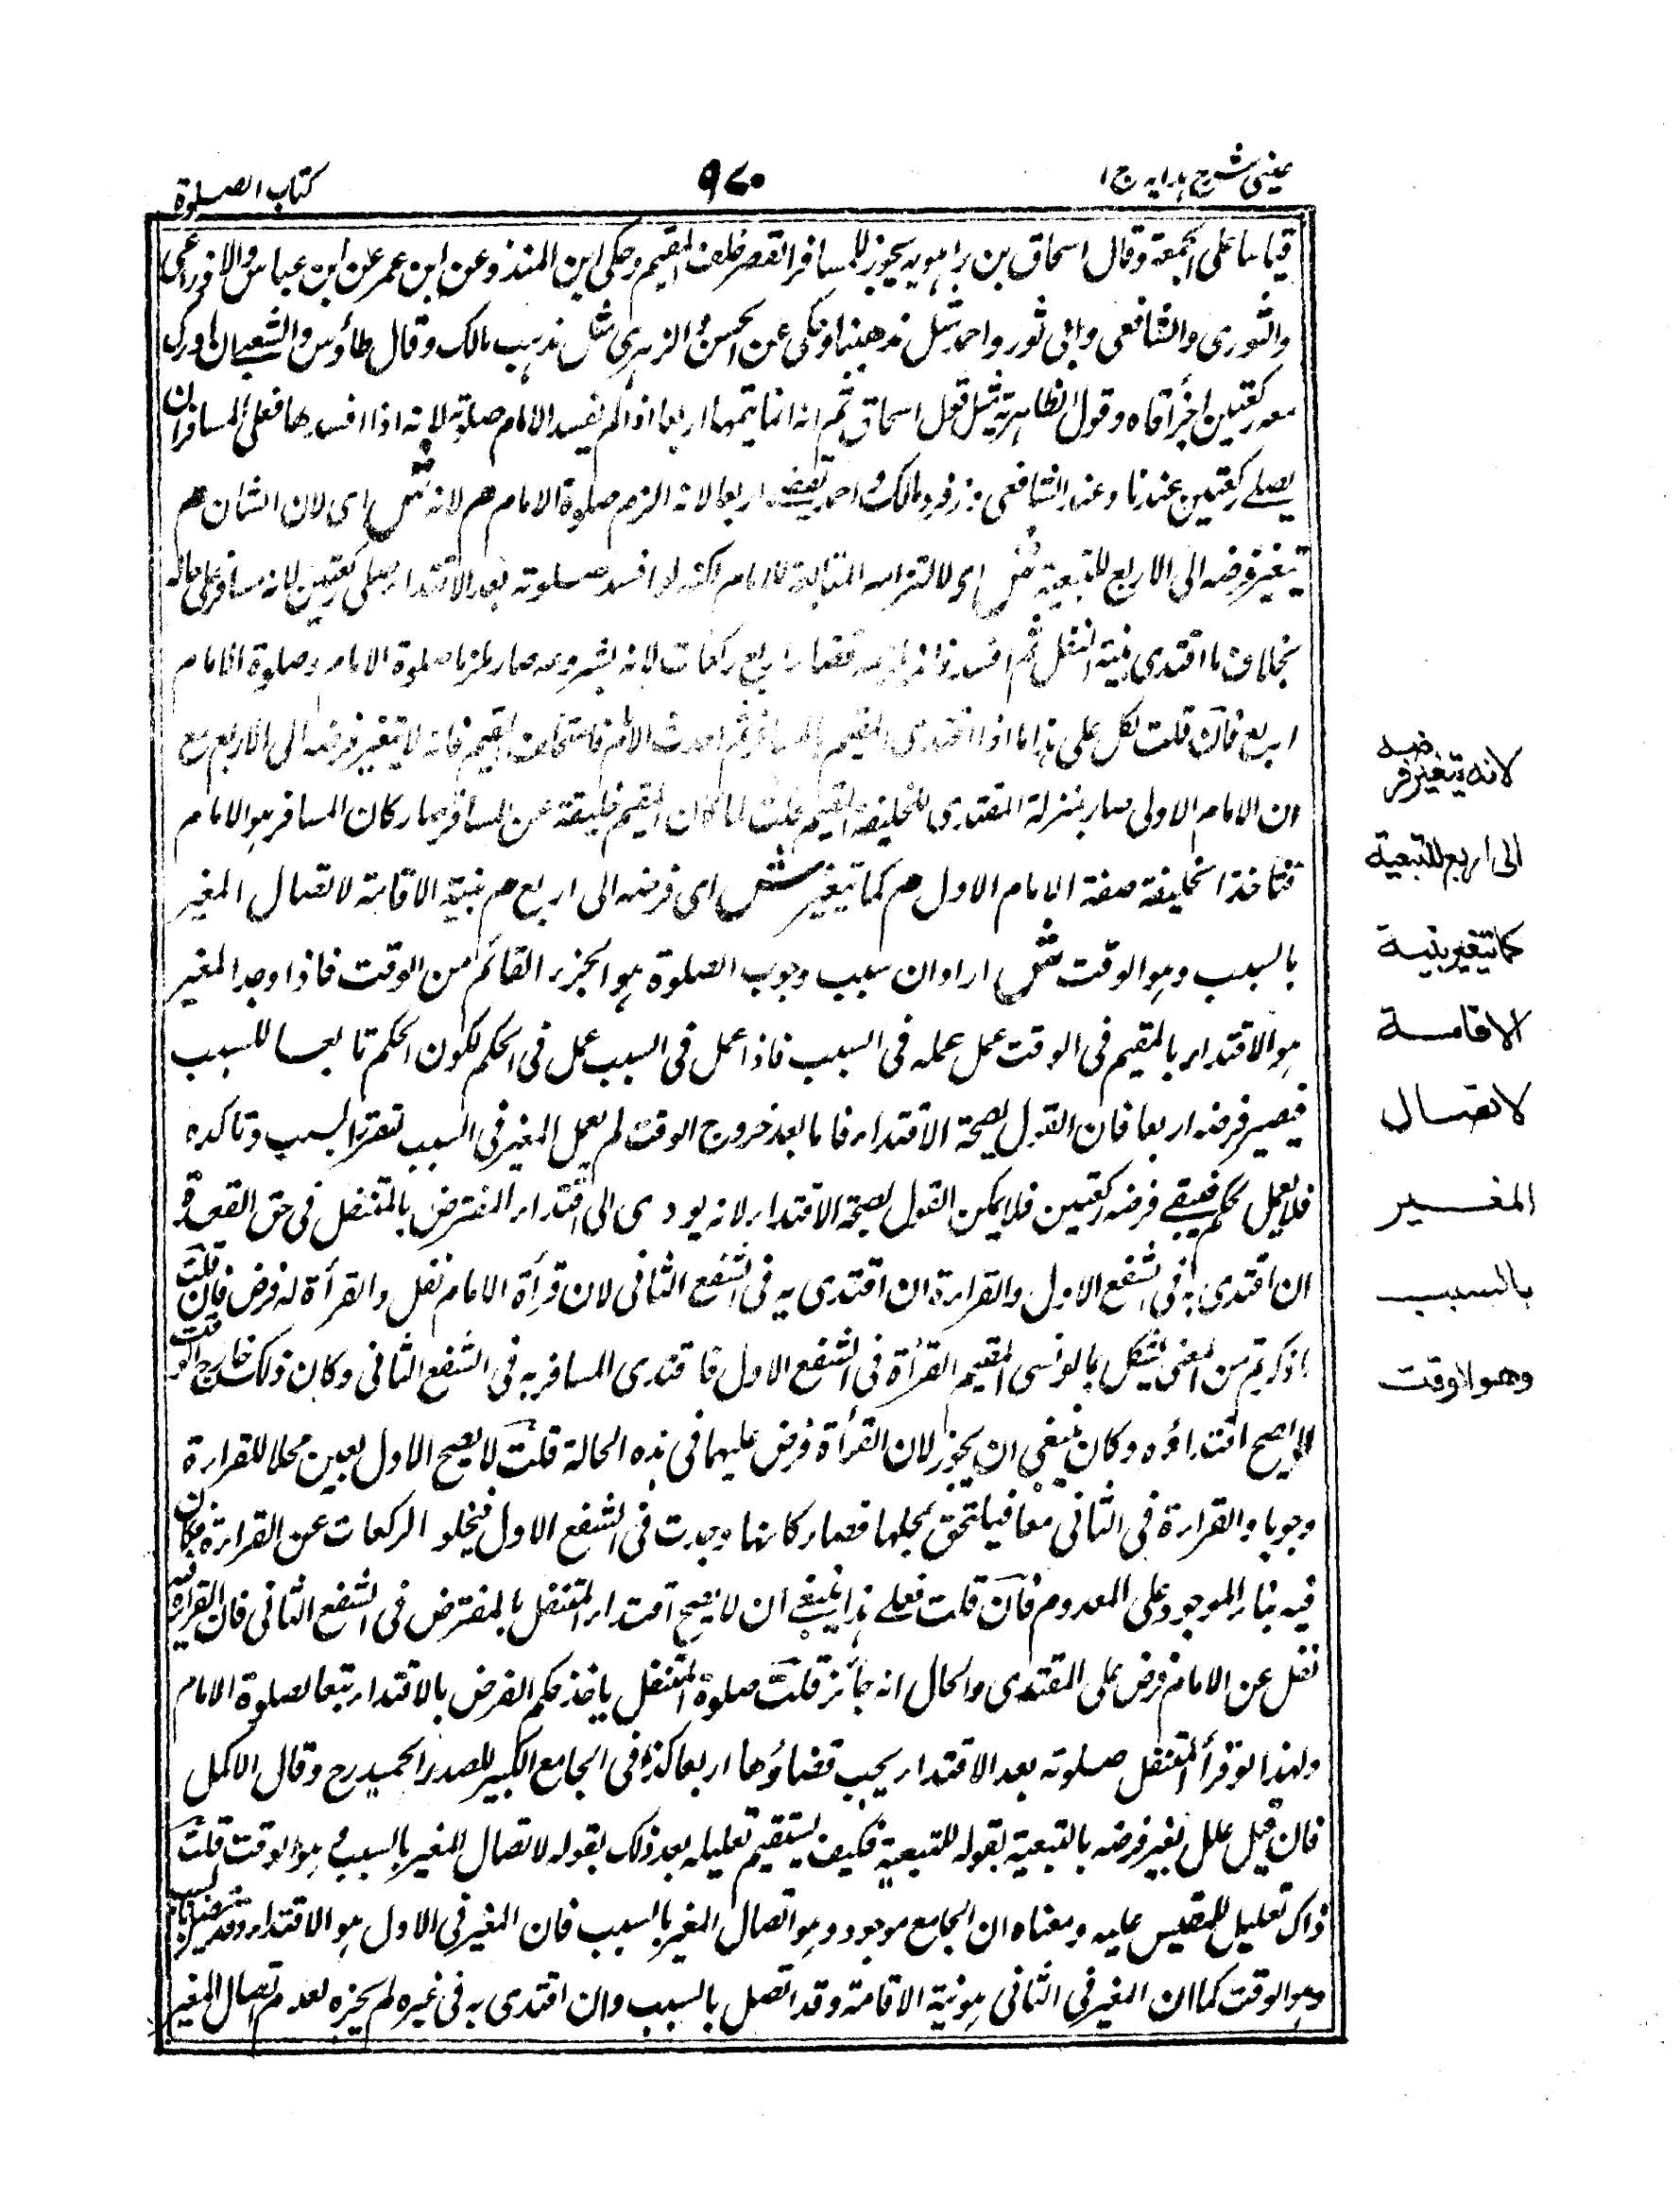 عینی شرح ہدایہ ج ۱
۹۷۰
کتاب الصلوة
قياسا على الجمعة وقال اسحاق بن راہویہ یجوز للمسافر القصر خلف المقیم وحکی ابن المنذر وعن ابن عمر عن ابن عباس والاوزاعی
والثوری والشافعی وابی ثور واحمد مثل مذهبنا وحکی عن الحسن والزہری مثل مذہب مالک وقال طاؤس والشعبی ان ادرک
معہ رکعتین اجزأتاہ وقول الظاہریة مثل قول اسحاق ثم انہ انما یتمها اربعا اذا لم یفسد الامام صلوتہ لانہ اذا افسدها فعلی المسافر ان
یصلے رکعتین عندنا وعند الشافعی وزفر ومالک واحمد یقضیہ اربعا لانہ الزم صلوة الامام هم لانہ ش ای لان الشان هم
یتغیر فرضہ الی الاربع للتبعیة ش ای لالتزامہ المتابعة للامام لکنہ لو افسد صلوتہ بعد الاقتداء صلی رکعتین لانہ مسافر علی حالہ
بخلاف ما اقتدی بنیة النفل ثم افسد فانہ یلزمہ قضاء اربع رکعات لانہ بشروعہ صار ملزما صلوة الامام وصلوة الامام
اربع فان قلت یشکل علی ہذا ما اذا اقتدی المقیم بالمسافر ثم احدث الامام فاستخلف المقیم فانہ لا یتغیر فرضہ الی الاربع مع
ان الامام الاول صار بمنزلة المقتدی للخلیفة المقیم قلت لما کان المقیم خلیفة عن المسافر صار کان المسافر ہو الامام
فتاخذ الخلیفة صفة الامام الاول هم کما یتغیر ش ای فرضہ الی اربع هم بنیة الاقامة لاتصال المغیر
بالسبب وہو الوقت ش اراد ان سبب وجوب الصلوة ہو الجزء القائم من الوقت فاذا وجد المغیر
ہو الاقتداء بالمقیم فی الوقت عمل عملہ فی السبب فاذا عمل فی السبب عمل فی الحکم لکون الحکم تابعا للسبب
فیصیر فرضہ اربعا فان القول بصحة الاقتداء فاما بعد خروج الوقت لم یعمل المغیر فی السبب لتقرر السبب وتاکدہ
فلا یعمل لحکم فیبقے فرضہ رکعتین فلا یمکن القول بصحة الاقتداء لانہ یودی الی اقتداء المفترض بالمتنفل فی حق القعدة
ان اقتدی بہ فی الشفع الاول والقراءة ان اقتدی بہ فی الشفع الثانی لان قرأة الامام نفل والقرأة لہ فرض فان قلت
ما ذکرتم من المعنی یشکل بما لو نسی المقیم القرأة فی الشفع الاول فاقتدی المسافر بہ فی الشفع الثانی وکان ذلک خارج الوقت
لا یصح اقتداؤہ وکان ینبغی ان یجوز لان القرأة فرض علیہما فی ہذہ الحالة قلت لا یصح الاول لعین محلا للقراءة
وجوبا والقراءة فی الثانی معا فیلتحق بمحلها فصار کانها وجدت فی الشفع الاول فیخلو الرکعات عن القراءة فکان
فیہ بناء الموجود علی المعدوم فان قلت فعلے ہذا ینبغے ان لا یصح اقتداء المتنفل بالمفترض فی الشفع الثانی فان القراءة فیہ
نفل عن الامام فرض علی المقتدی والحال انہ جائز قلت صلوة المتنفل یاخذ حکم الفرض بالاقتداء تبعا لصلوة الامام
ولہذا لو قرأ المتنفل صلوتہ بعد الاقتداء یجب قضاؤها اربعا کذا فی الجامع الکبیر للصدر الحمید رح وقال الاکمل
فان قیل علل تغیر فرضہ بالتبعیة بقولہ للتبعیة فکیف یستقیم تعلیلہ بعد ذلک بقولہ لاتصال المغیر بالسبب وہو الوقت قلت
ذاک تعلیل للمقیس علیہ ومعناہ ان الجامع موجود وہو اتصال المغیر بالسبب فان المغیر فی الاول ہو الاقتداء وقد اتصل بالسبب
وہو الوقت کما ان المغیر فی الثانی ہو نیة الاقامة وقد اتصل بالسبب وان اقتدی بہ فی غیرہ لم یجزہ لعدم اتصال المغیر
لانه يتغير فرضه
الى اربع للتبعية
كما يتغير بنية
الاقامة
لاتصال
المغير
بالسبب
وهو الوقت